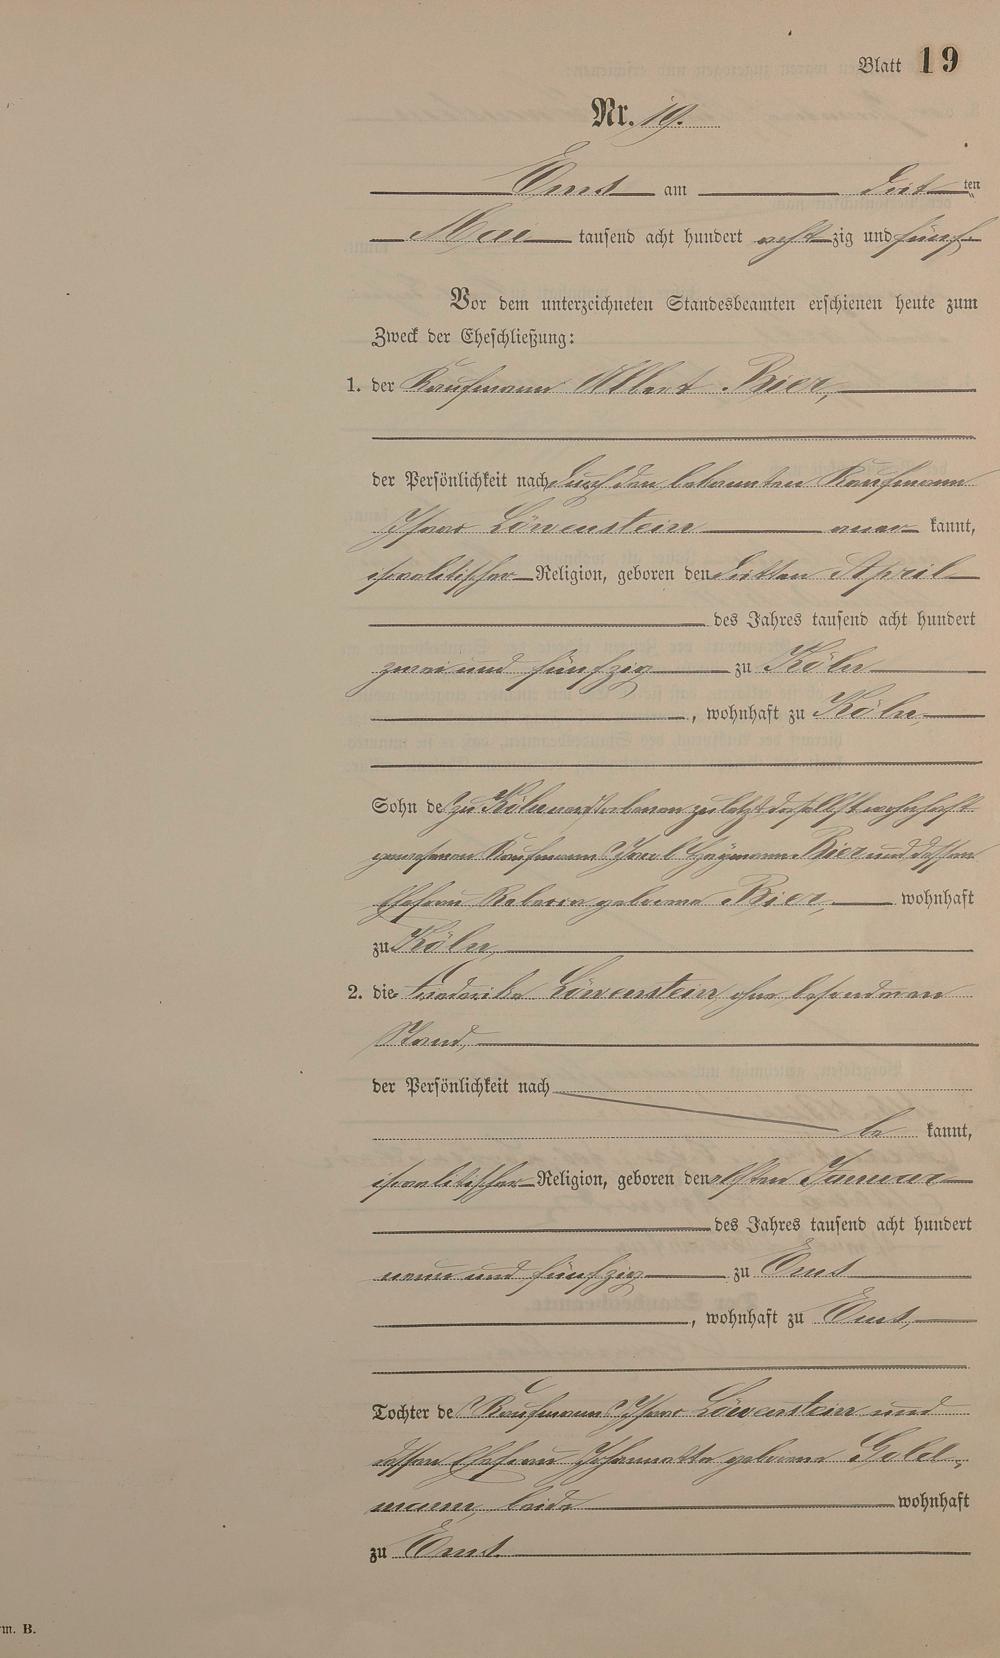 Blatt 19
Nr. 19.
Ems am drit ten
Mai tausend acht hundert acht zig und fünf.
Vor dem unterzeichneten Standesbeamten erschienen heute zum
Zweck der Eheschließung:
1. der Kaufmann Albert Bier,
der Persönlichkeit nach durch den bekannten Kaufmann
Löwenstein aner kannt,
israelitischer Religion, geboren den dritten April
des Jahres tausend acht hundert
zwei und fünfzig zu Köln
, wohnhaft zu Köln,
Sohn des zu Köln verstorbenen zuletzt daselbst wohnhaft
gewesenen Kaufmann Heymann Bier und dessen
Ehefrau geborene Bier, wohnhaft
zu Köln,
2. die Friederike Löwenstein, ohne besonderen
Stand,
der Persönlichkeit nach
be kannt,
israelitischer Religion, geboren den elften Januar
des Jahres tausend acht hundert
neun und fünfzig zu Ems
, wohnhaft zu Ems,
Tochter des Kaufmann Löwenstein und
dessen Ehefrau Johannetta geborene Gold-
mann, beide wohnhaft
zu Ems.
rm. B.